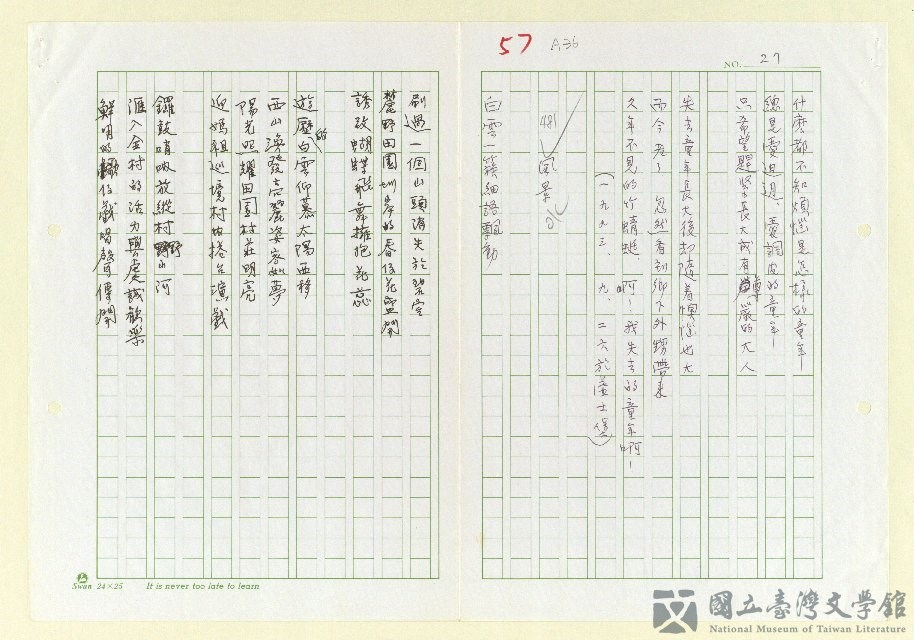 57 A36
NO. 27
什麼都不知煩惱是怎樣的童年—
總是愛逗逗、愛調皮的童年—
只希望趕緊長大成有尊嚴的大人
失去童年長大後却隨着懊惱也大
而今老了 忽然看到鄉下外甥帶來
久年不見的竹蜻蜓、啊！我失去的童年啊—
(一九九三、九、二六於 士 )
481 風景
白雲一簇細語飄動
刷過一個山頭消失於碧空
麓野田園 的春信花盛開
誘致蝴蝶飛舞擁抱花蕊
遊歷的白雲仰慕太陽西移
西山澳發亮麗姿容如夢
陽光照耀田園村莊明亮
迎媽祖巡境村內搭台演戲
鑼鼓哨吶放縱村野山河
滙入全村的活力與虔誠歡樂
鮮明的 戲唱聲傳開
Swan 24×25 It is never too late to learn
國立臺灣文學館
National Museum of Taiwan Literature